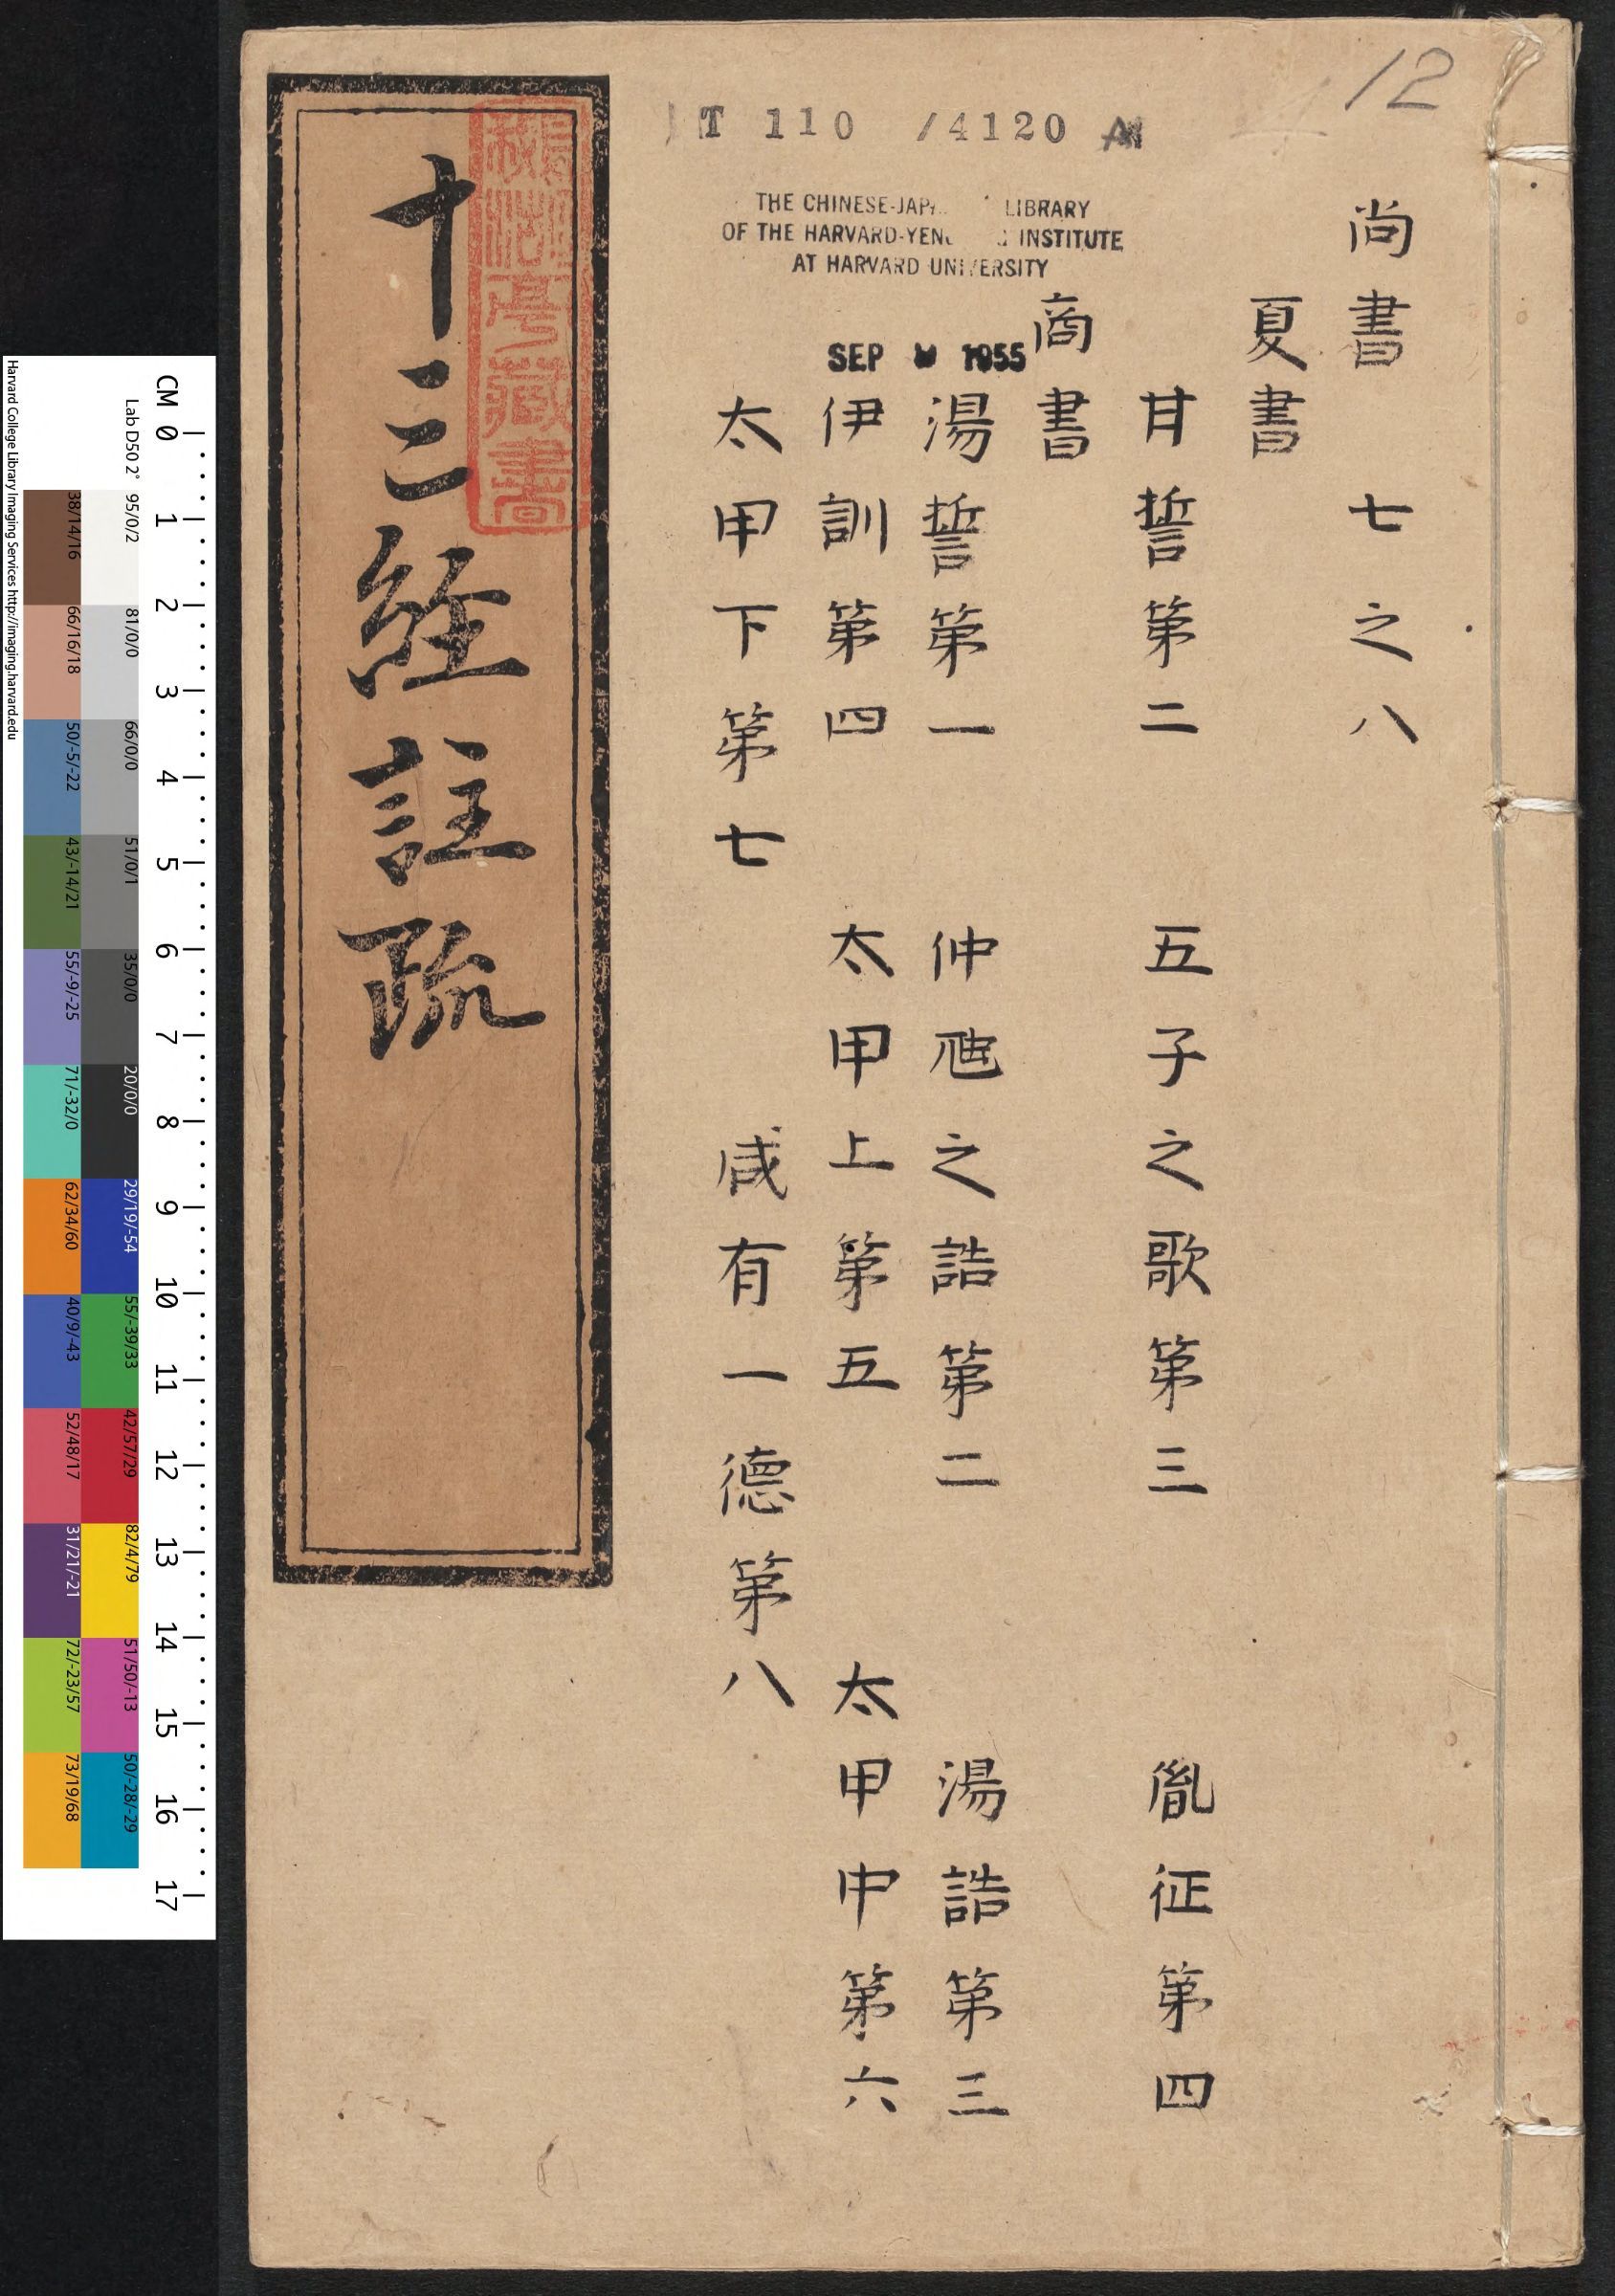 12
T 110 /4120
THE CHINESE-JAP LIBRARY
OF THE HARVARD-YEN INSTITUTE
AT HARVARD UNIVERSITY
SEP 1955
尚書 七之八
夏書
甘誓第二 五子之歌第三 胤征第四
商書
湯誓第一 仲虺之誥第二 湯誥第三
伊訓第四 太甲上第五 太甲中第六
太甲下第七 咸有一德第八
十三經註疏
藏書
CM 0 1 2 3 4 5 6 7 8 9 10 11 12 13 14 15 16 17
Lab D50 2° 95/0/2 81/0/0 66/0/0 51/0/1 35/0/0 20/0/0 29/19/-54 55/-39/33 42/57/29 82/4/79 51/50/-13 50/-28/-29
38/14/16 66/16/18 50/-5/-22 43/-14/21 55/-9/-25 71/-32/0 62/34/60 40/9/-43 52/48/17 31/21/-21 72/-23/57 73/19/68
Harvard College Library Imaging Services http://imaging.harvard.edu